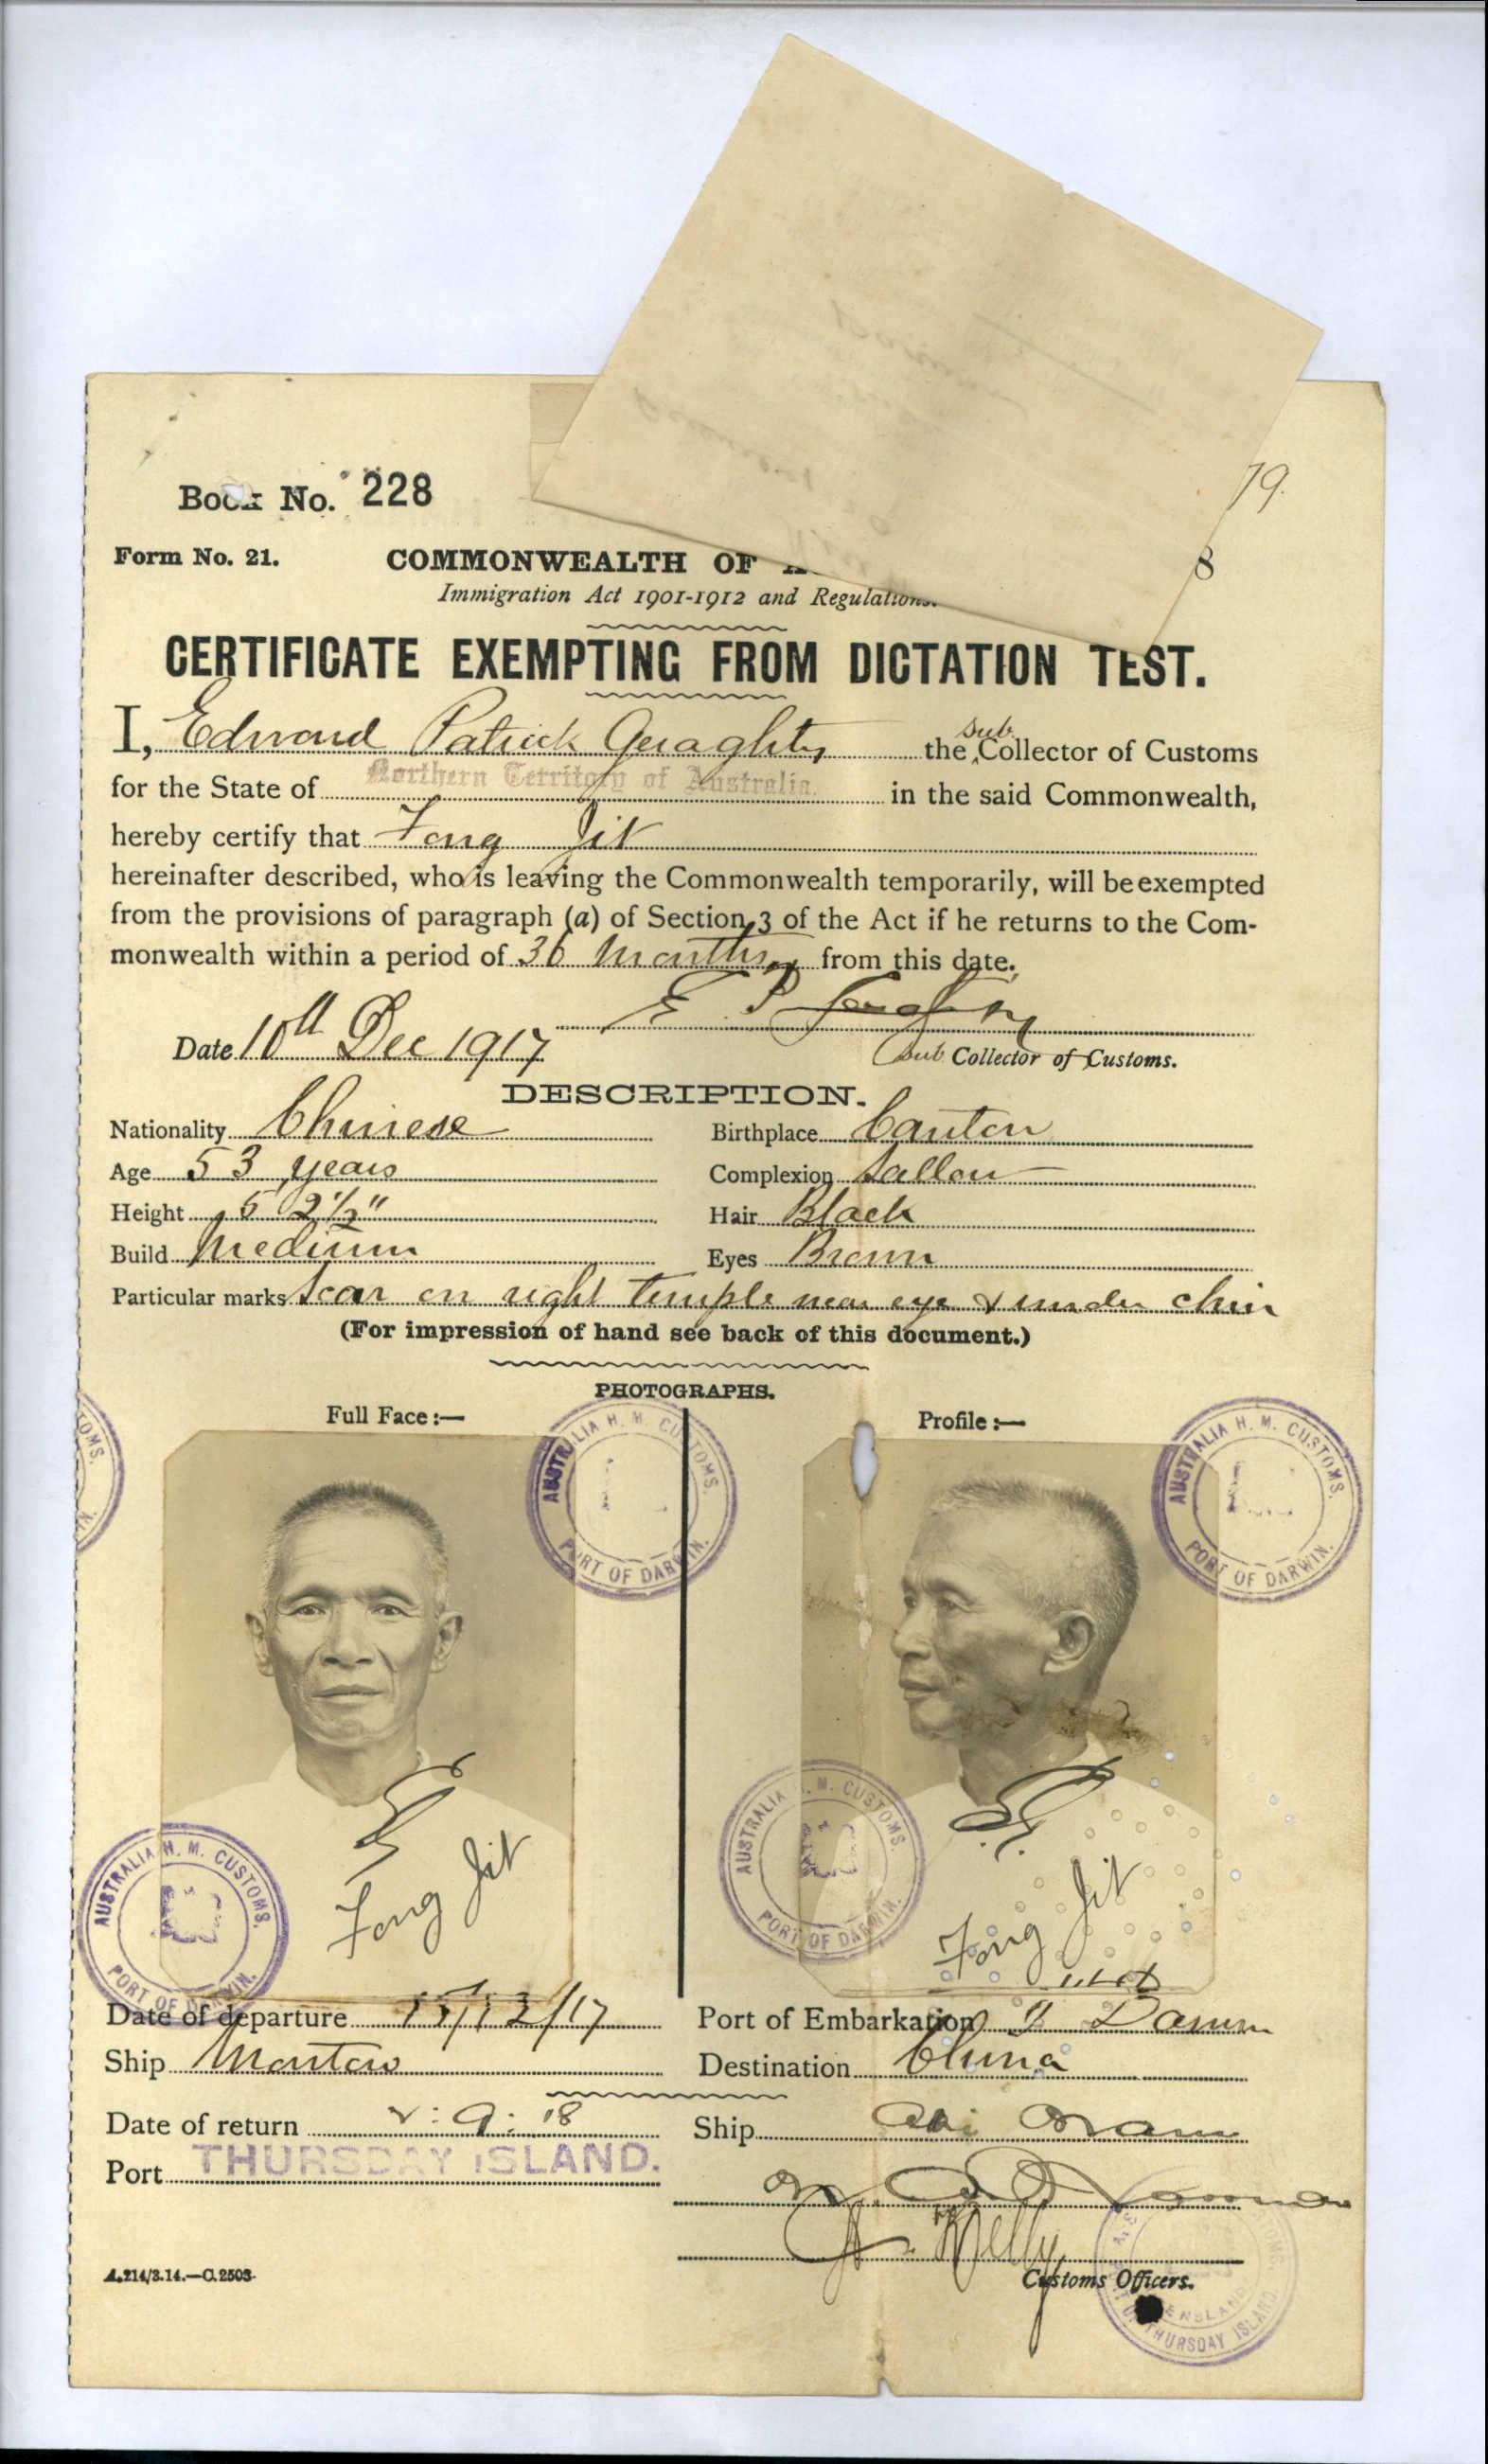 19.
Book No. 228
8
Form No. 21. COMMONWEALTH OF
Immigration Act 1901-1912 and Regulations.
CERTIFICATE EXEMPTING FROM DICTATION TEST.
I, Edward Patrick Geraghty the Sub Collector of Customs
for the State of Northern Territory of Australia. in the said Commonwealth,
hereby certify that Fong Jit
hereinafter described, who is leaving the Commonwealth temporarily, will be exempted
from the provisions of paragraph (a) of Section 3 of the Act if he returns to the Com-
monwealth within a period of 36 Months from this date.
E P Geraghty
Date 10th Dec 1917 Sub Collector of Customs.
DESCRIPTION.
Nationality Chinese Birthplace Canton
Age 53 years Complexion Sallow
Height 5 2½" Hair Black
Build Medium Eyes Brown
Particular marks Scar on right temple near eye & under chin
(For impression of hand see back of this document.)
PHOTOGRAPHS.
Full Face:— Profile:—
AUSTRALIA H. M. CUSTOMS. PORT OF DARWIN.
AUSTRALIA H. M. CUSTOMS. PORT OF DARWIN.
AUSTRALIA H. M. CUSTOMS. PORT OF DARWIN.
AUSTRALIA H. M. CUSTOMS. PORT OF DARWIN.
Fong Jit
Fong Jit
Date of departure 15/12/17 Port of Embarkation Darwin
Ship Montoro Destination China
Date of return 2: 9: 18 Ship
Port THURSDAY ISLAND.
Customs Officers.
THURSDAY ISLAND.
A.214/3.14.—C.2503